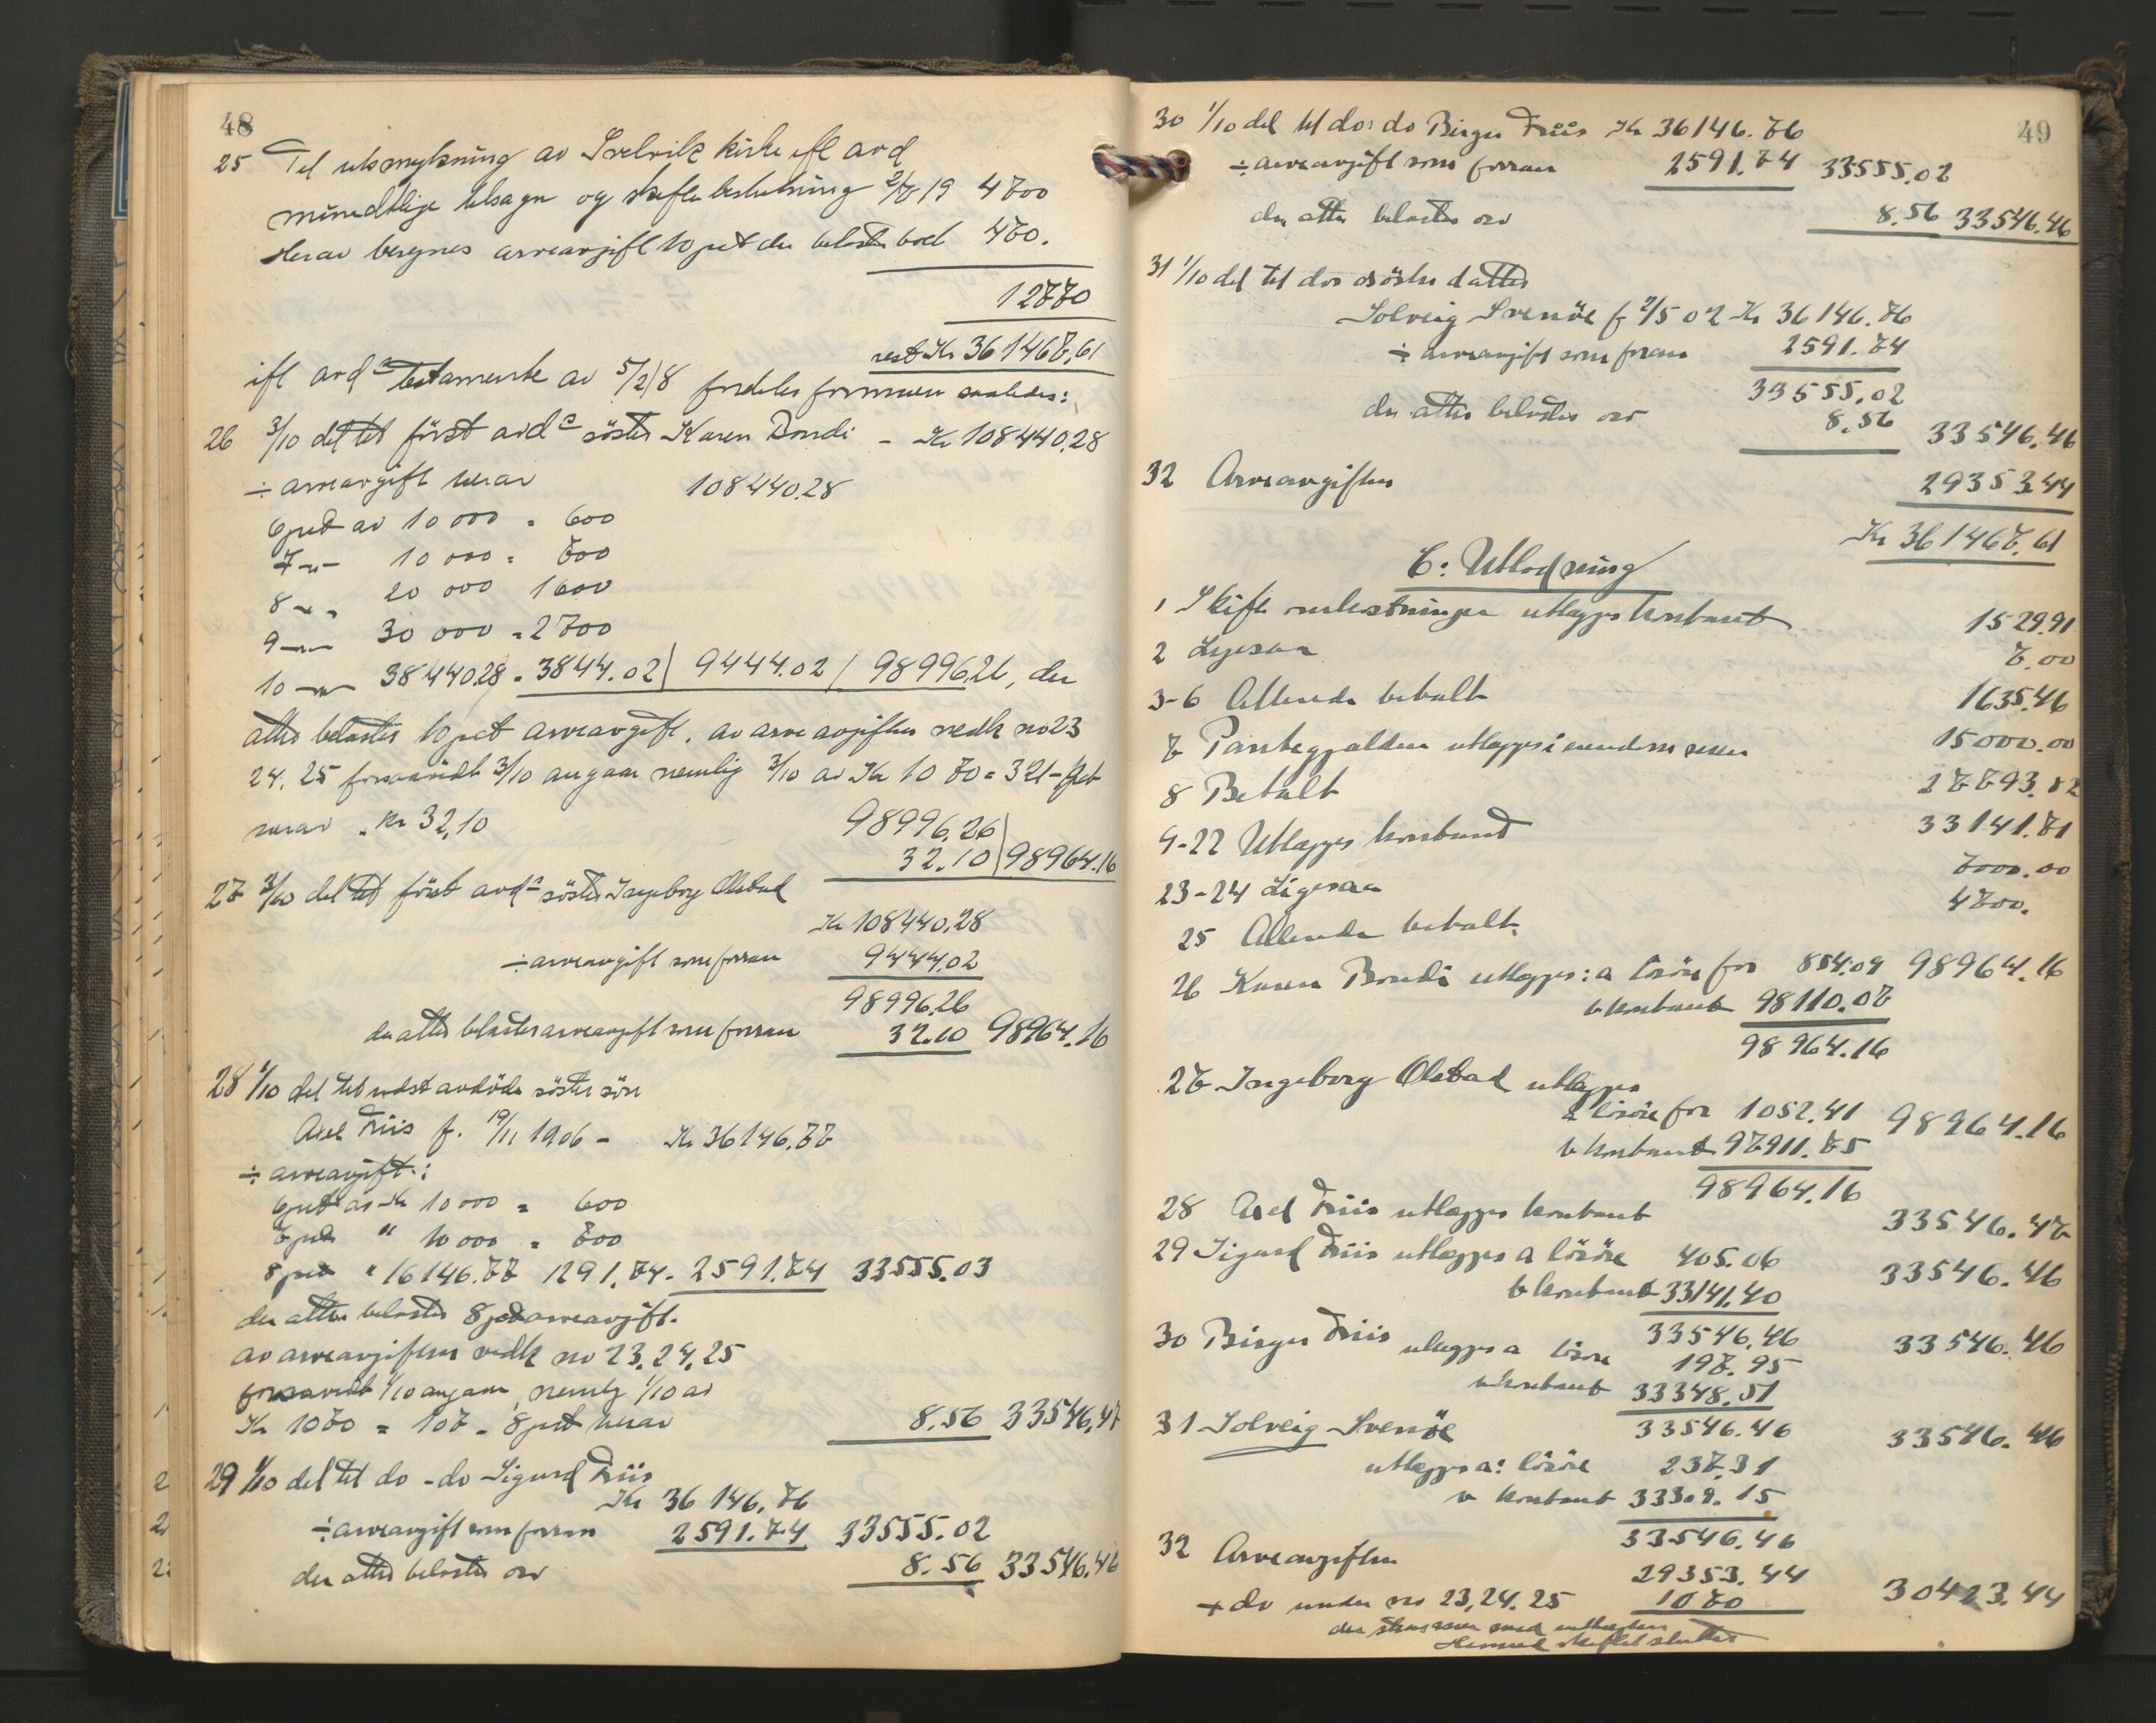 48
25 Til utsmykning av Svelvik kirke ifl avd
mundtlige tilsagn og skiftebeslutning 2/7 19 4700
Herav beregnes arveavgift 10 pct der belastes boet 470.
12770
rest Kr 361467,61
ifl avd⁵ testamente av 5/2 18 fordeles formuen saaledes:
26 3/10 del til først avd⁵ søster Karen Bondi - Kr 108440.28
÷ arveavgift herav 108440.28
6 pct av 10000 = 600
7 -"- 10000 = 700
8 -"- 20000 1600
9 -"- 30000 = 2700
10 -"- 38440.28 = 3844.02 | 9444.02 | 98996.26, der
atter belastes 10 pct arveavgift. av arveavgiften vedk no 23
24. 25 forsaavidt 3/10 angaar nemlig 3/10 av Kr 1070 = 321 -
herav = kr 32,10 98996.26
32.10 | 98964.16
27 3/10 del til først avd⁵ søster Ingeborg Olstad
Kr 108440.28
÷ arveavgift som foran 9444.02
98996.26
der atter belastes arveavgift som foran 32.10 98964.16
28 1/10 del til sidst avdöde søsters sön
Axel Friis f. 19/11 1906 - Kr 36146.77
÷ arveavgift:
6 pct av Kr 10000 = 600
7 pct " 10000 = 700
8 pct " 16146.77 1291.74 - 2591.74 33555.03
der atter belastes 8 pct arveavgift.
av arveavgiften vedk no 23, 24, 25
forsaavidt 1/10 angaar, nemlig 1/10 av
Kr 1070 = 107 - 8 pct herav 8.56 33546.47
29 1/10 del til do - do Sigurd Friis
Kr 36146.76
÷ arveavgift som foran 2591.74 33555.02
der atter belastes av 8.56 33546.46
49
30 1/10 del til do: do Birger Friis Kr 36146.76
÷ arveavgift som foran 2591.74 33555.02
der atter belastes av 8.56 33546.46
31 1/10 del til dos søsters datter
Solveig Svenöe f 2/5 02 Kr 36146.76
÷ arveavgift som foran 2591.74
33555.02
der atter belastes av 8.56 33546.46
32 Arveavgiften 29353.44
Kr 361467.61
C: Utlodning
1 Skifteomkostninger utlægges kontant 1529.91
2 Ligesaa 7.00
3-6 Allerede betalt 1635.46
7 Pantegjælden utlægges i eiendommen 15000.00
8 Betalt 27793.82
9-22 Utlægges kontant 33141.71
23-24 Ligesaa 7000.00
25 Allerede betalt 4700.
26 Karen Bondi utlægges: a lösöre for 854.09 98964.16
b kontant 98110.07
98964.16
27 Ingeborg Olstad utlægges
a lösöre for 1052.41 98964.16
b kontant 97911.75
98964.16
28 Axel Friis utlægges kontant 33546.47
29 Sigurd Friis utlægges a lösöre 405.06 33546.46
b kontant 33141.40
33546.46
30 Birger Friis utlægges a lösöre 197.95 33546.46
b kontant 33348.51
33546.46
31 Solveig Svenöe 33546.46
utlægges a: lösöre 237.31
b kontant 33309.15
33546.46
32 Arveavgiften 29353.44
+ do under no 23, 24, 25 1070 30423.44
der stemmer med
Hermed skiftet sluttet